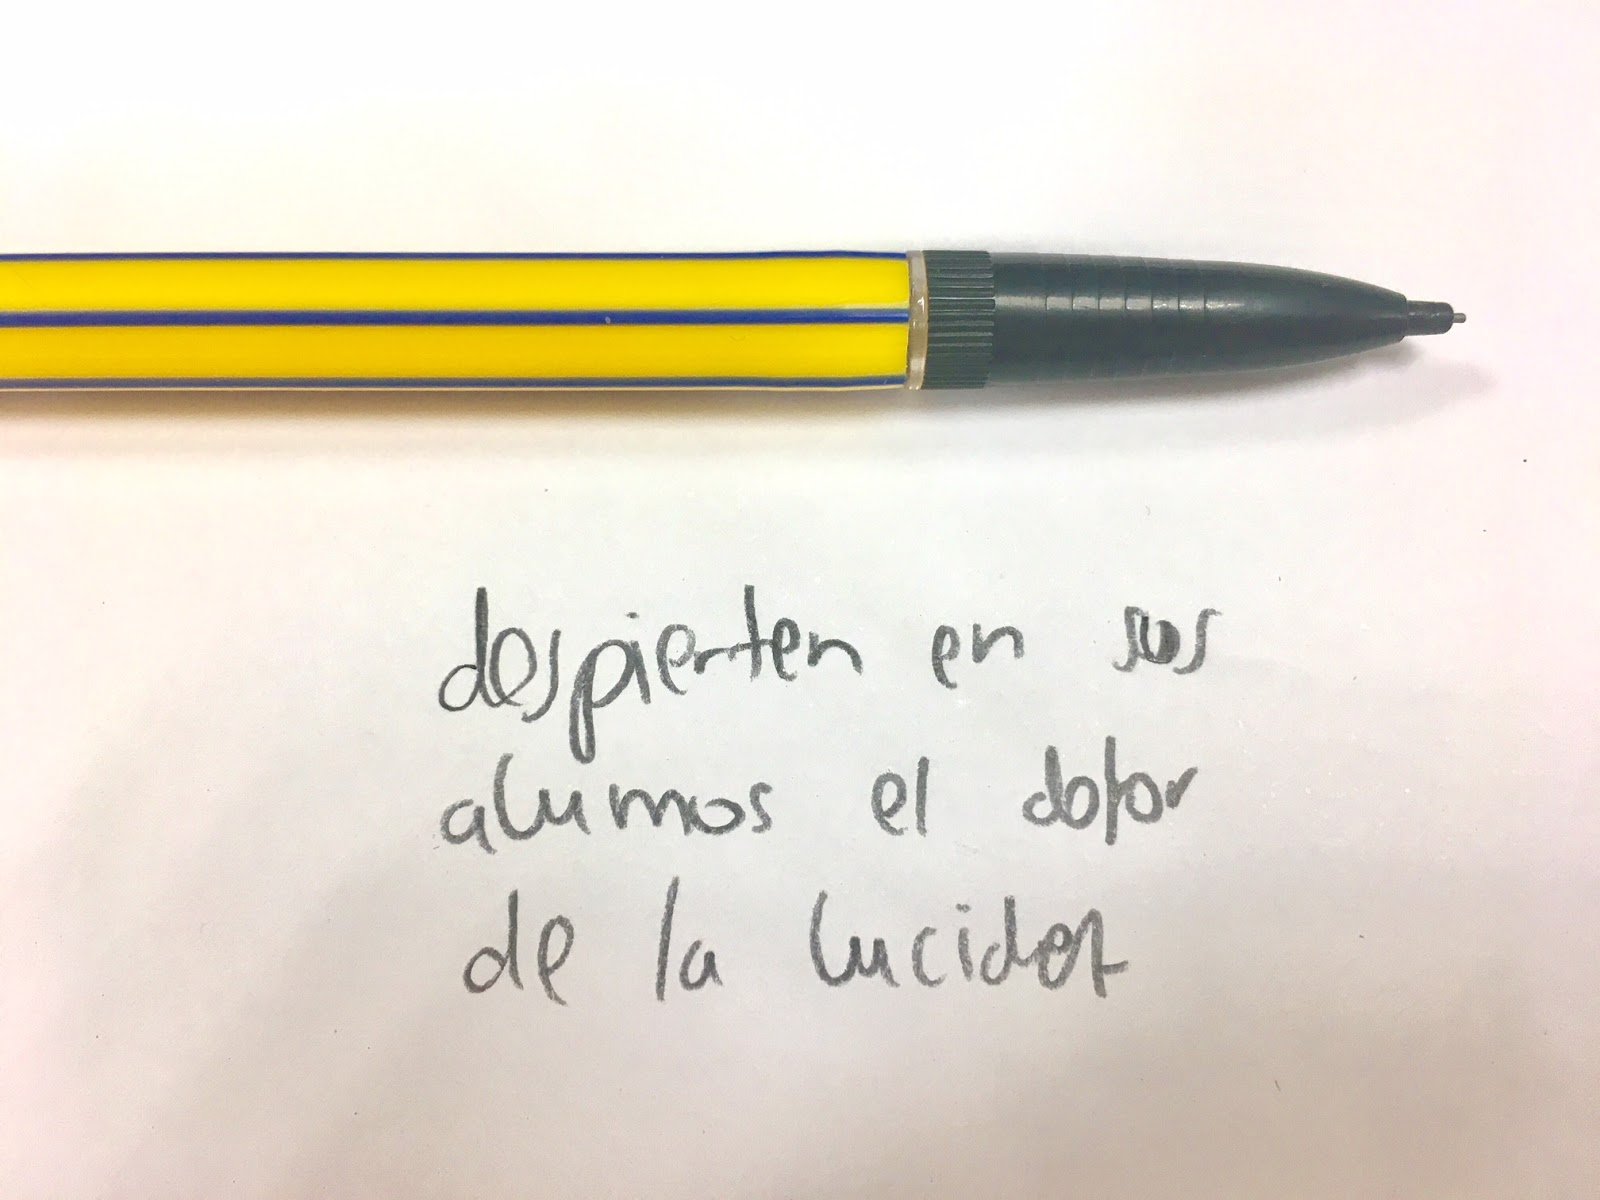 despierten en sus
alumos el dolor
de la lucidez